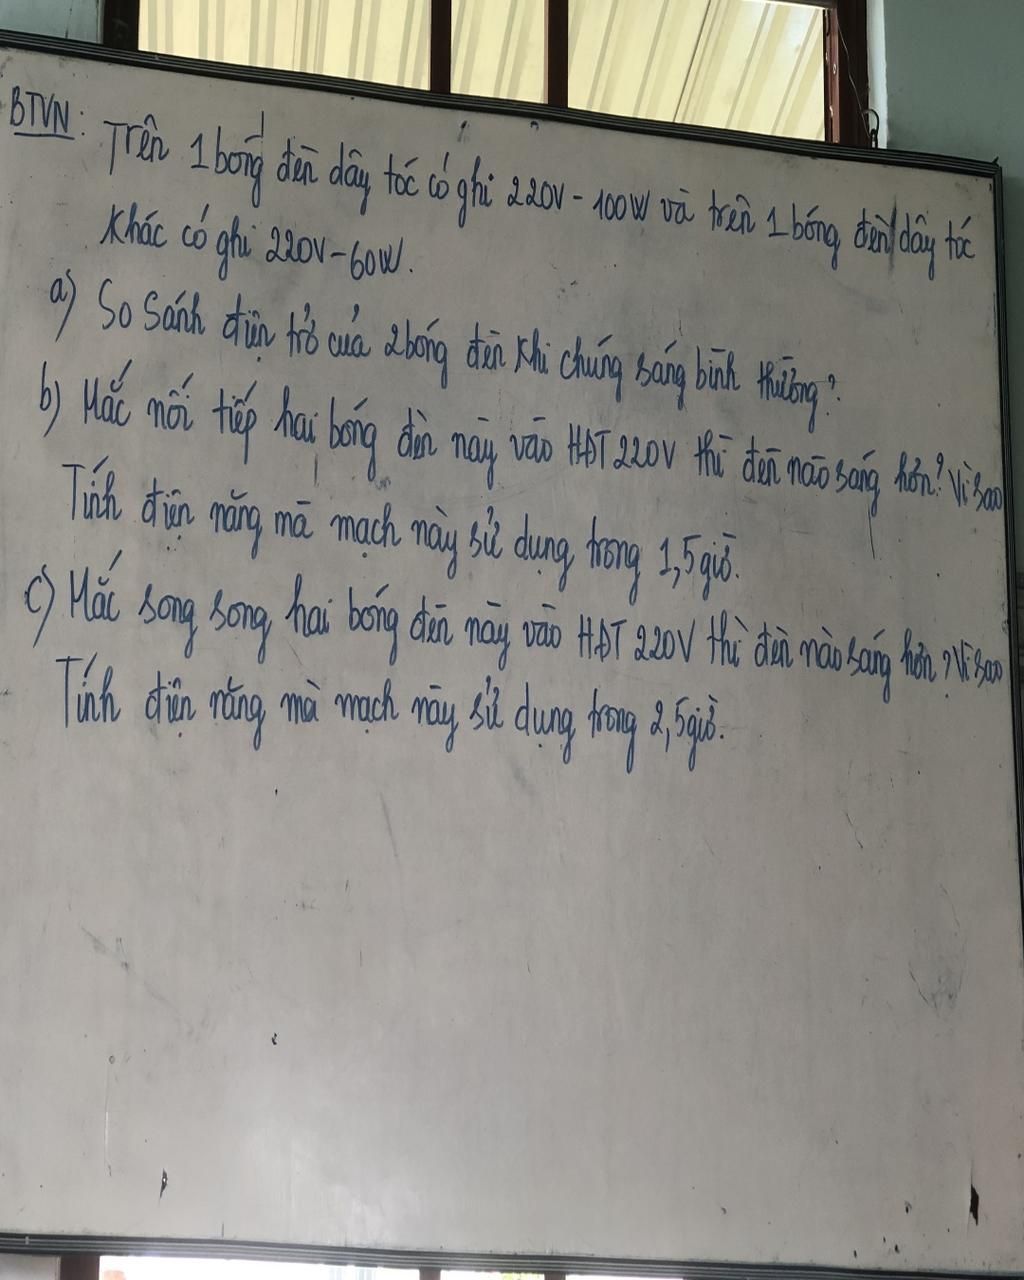 BTVN: Trên 1 bóng đèn dây tóc có ghi 220V - 100W và trên 1 bóng đèn dây tóc
khác có ghi 220V - 60W.
a) So sánh điện trở của 2 bóng đèn khi chúng sáng bình thường?
b) Mắc nối tiếp hai bóng đèn này vào HĐT 220V thì đèn nào sáng hơn? Vì sao
Tính điện năng mà mạch này sử dụng trong 1,5 giờ.
c) Mắc song song hai bóng đèn này vào HĐT 220V thì đèn nào sáng hơn? Vì sao
Tính điện năng mà mạch này sử dụng trong 2,5 giờ.